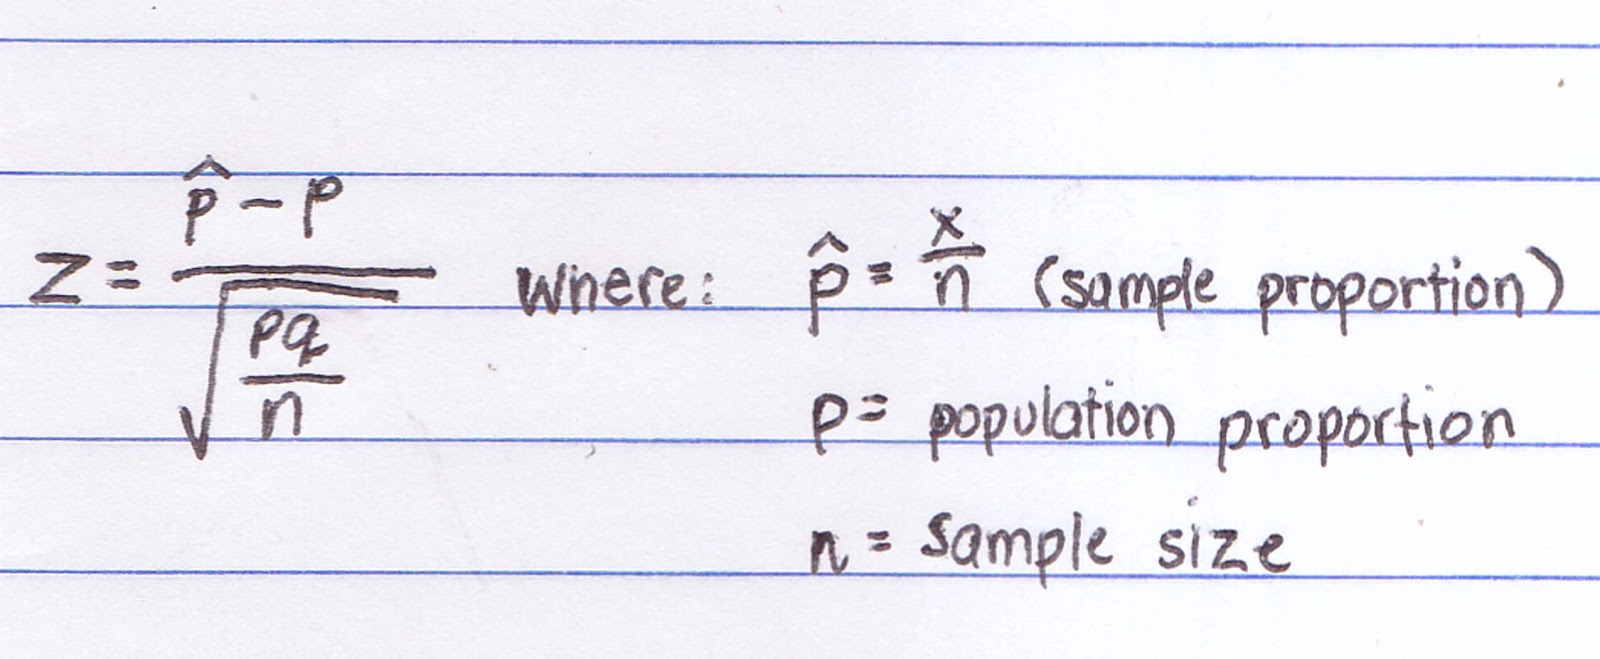 z = (p̂ - p) / √(pq/n) where: p̂ = x/n (sample proportion)
p = population proportion
n = sample size